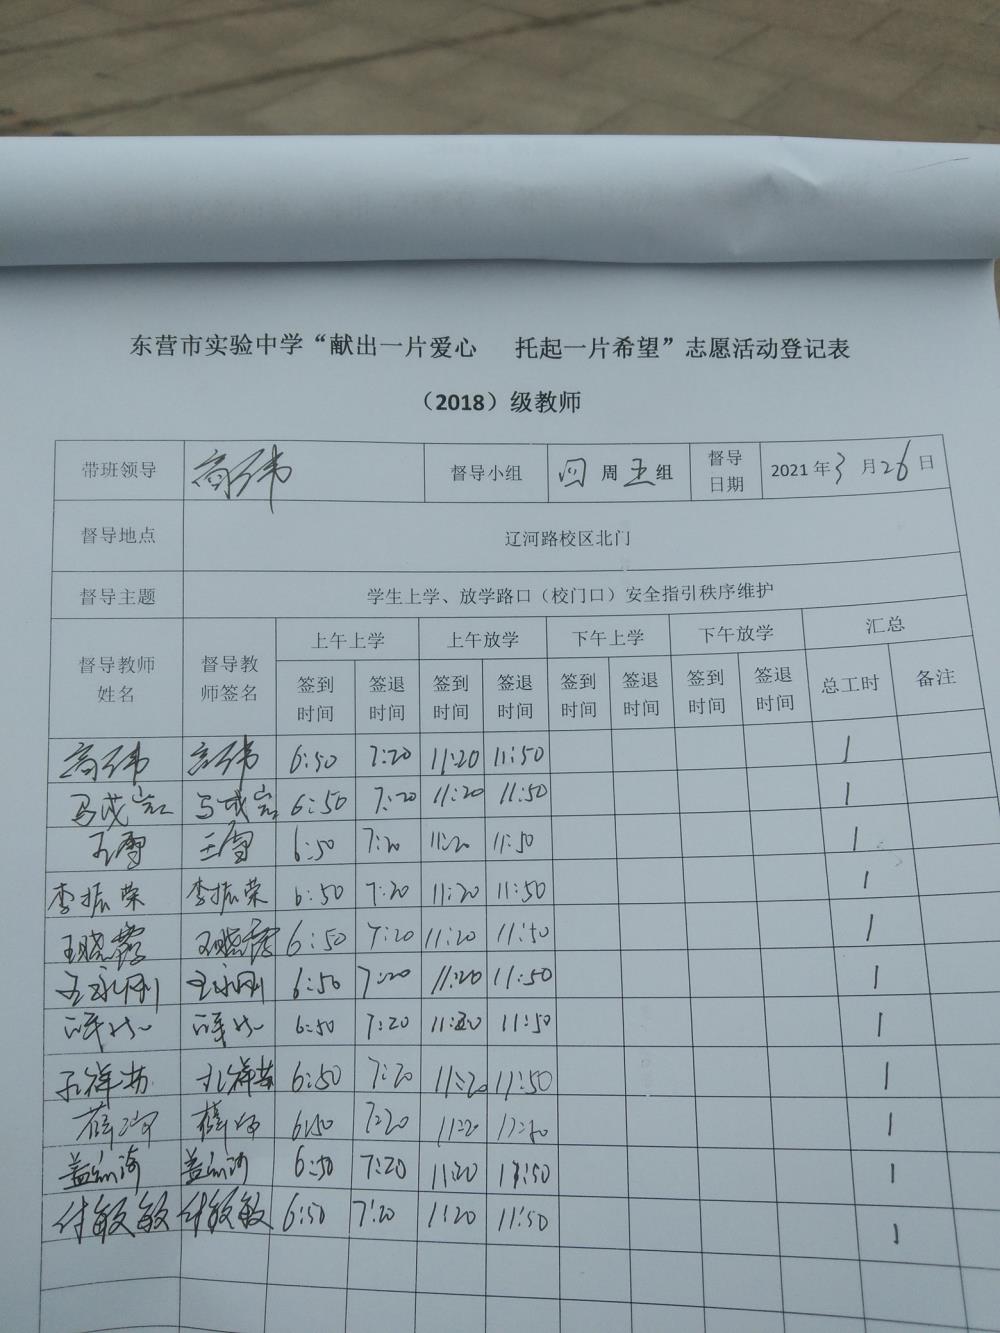 东营市实验中学“献出一片爱心 托起一片希望”志愿活动登记表
（2018）级教师
带班领导 高伟 督导小组 四 周 五 组 督导日期 2021年3月26日
督导地点 辽河路校区北门
督导主题 学生上学、放学路口（校门口）安全指引秩序维护
督导教师姓名 督导教师签名 上午上学 上午放学 下午上学 下午放学 汇总
签到时间 签退时间 签到时间 签退时间 签到时间 签退时间 签到时间 签退时间 总工时 备注
高伟 高伟 6:50 7:20 11:20 11:50 1
马茂岩 马茂岩 6:50 7:20 11:20 11:50 1
王雪 王雪 6:50 7:20 11:20 11:50 1
李振荣 李振荣 6:50 7:20 11:20 11:50 1
王晓霞 王晓霞 6:50 7:20 11:20 11:50 1
王永刚 王永刚 6:50 7:20 11:20 11:50 1
6:50 7:20 11:20 11:50 1
孔祥苗 孔祥苗 6:50 7:20 11:20 11:50 1
薛 薛 6:50 7:20 11:20 11:50 1
盖 盖 6:50 7:20 11:20 11:50 1
付敏敏 付敏敏 6:50 7:20 1:20 11:50 1